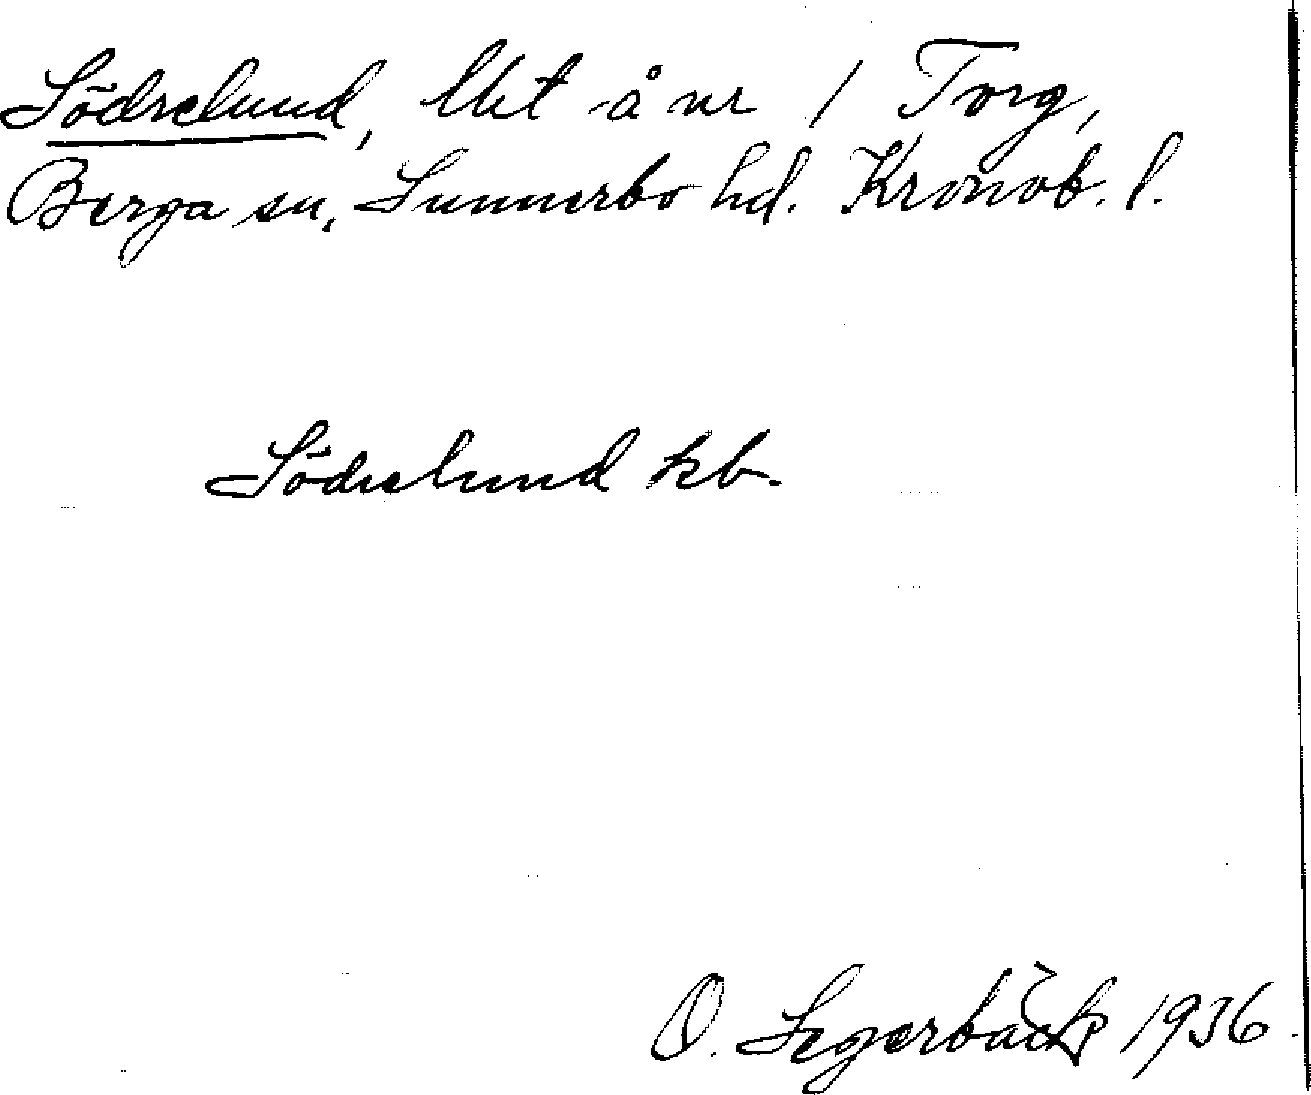 Södrelund, lht å nr 1 Torg,
Berga sn, Sunnerbo hd. Kronob. l.
Södrelund kb.
O. Segerbäck 1936